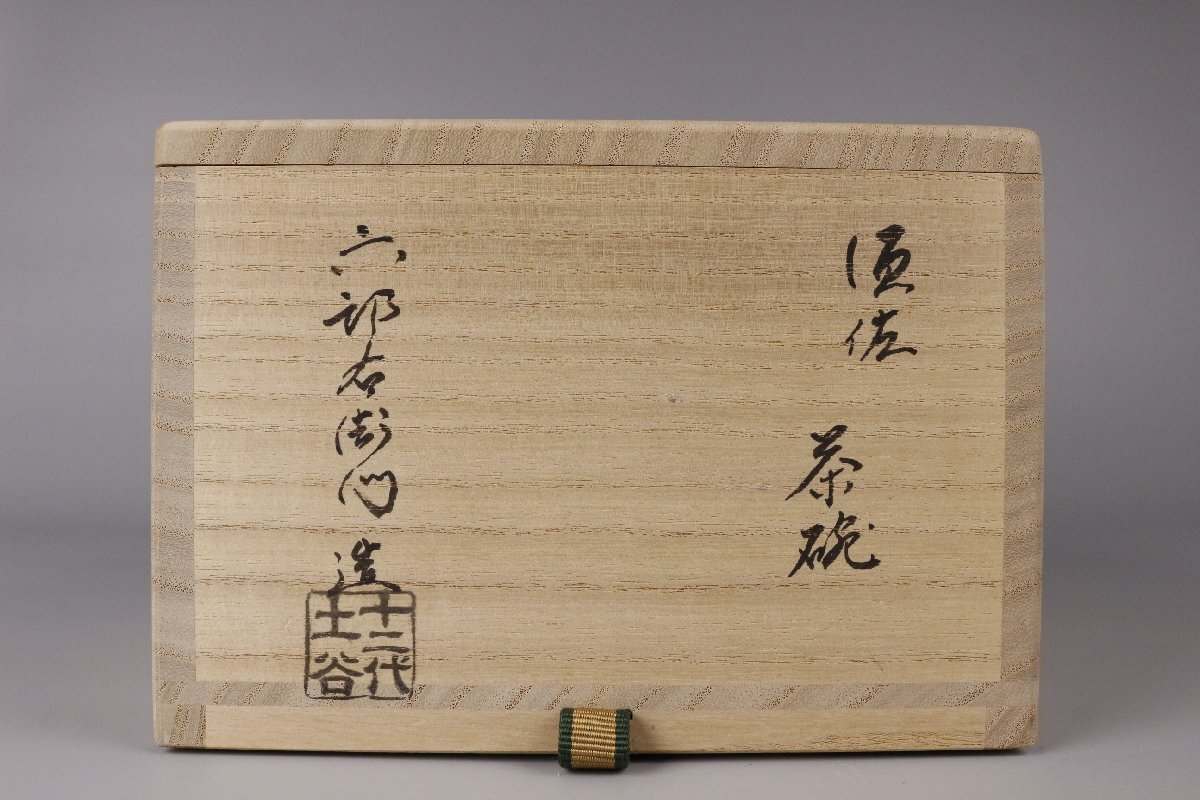 須佐 茶碗
六郎右衛門 造
十二代
土谷